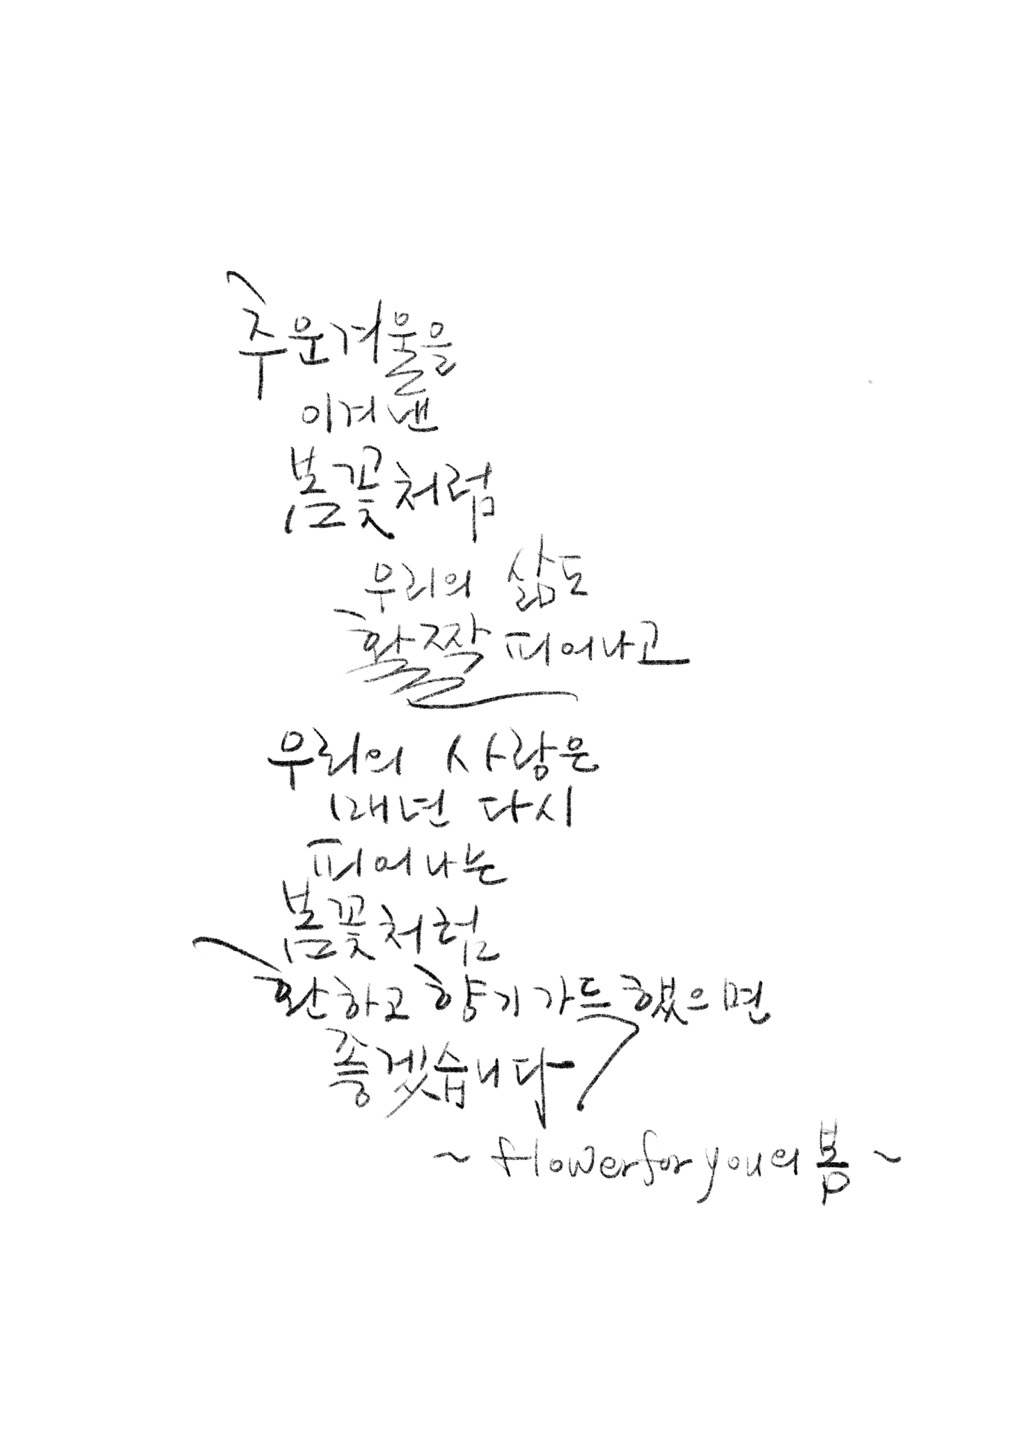 추운겨울을
이겨낸
봄꽃처럼
우리의 삶도
활짝 피어나고
우리의 사랑은
매년 다시
피어나는
봄꽃처럼
환하고 향기가득했으면
좋겠습니다
~ flowerforyou의 봄 ~